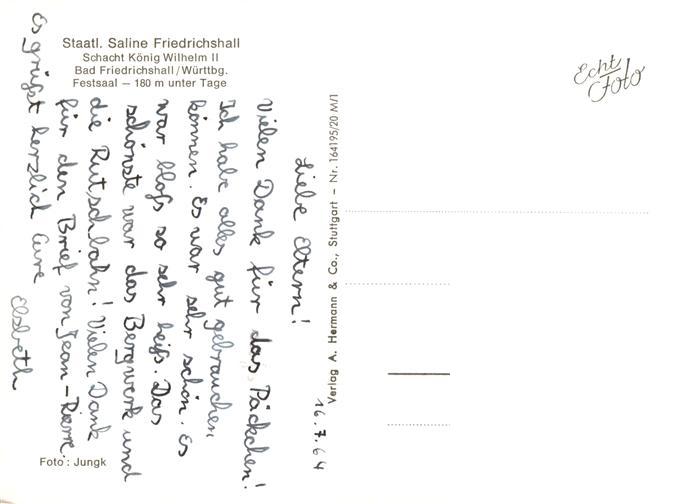 Staatl. Saline Friedrichshall
Schacht König Wilhelm II
Bad Friedrichshall/Württbg.
Festsaal – 180 m unter Tage
Echt
Foto
16.7.64
Liebe Eltern!
Vielen Dank für das Päckchen!
Ich habe alles gut gebrauchen
können. Es war sehr schön. Es
war bloß so sehr heiß. Das
schönste war das Bergwerk und
die Rutschbahn! Vielen Dank
für den Brief von Jean-Pierre.
Es grüßt herzlich Eure
Elsbeth
Verlag A. Hermann & Co., Stuttgart – Nr. 164195/20 M/1
Foto: Jungk